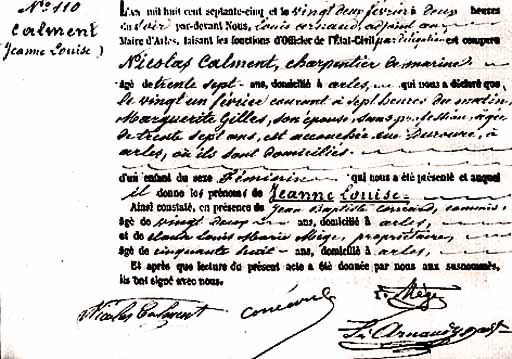 N° 110
Calment
Jeanne Louise
L'an mil huit cent septante-cinq et le vingt deux février à deux heures
du soir par-devant Nous, Louis Arnaud, adjoint au
Maire d'Arles, faisant les fonctions d'Officier de l'État-Civil par délégation est comparu
Nicolas Calment, charpentier de marine
âgé de trente sept ans, domicilié à arles, qui nous a déclaré que
le vingt un février courant à sept heures du matin,
Marguerite Gilles, son épouse, sans profession, âgée
de trente sept ans, est accouchée rue du à
arles, où ils sont domiciliés
d'un enfant du sexe féminin qui nous a été présenté et auquel
il donne les prénoms de Jeanne Louise
Ainsi constaté, en présence de Jean Baptiste commis
âgé de vingt ans, domicilié à arles,
et de Louis Marie Mège, propriétaire,
âgé de cinquante huit ans, domicilié à arles,
Et après que lecture du présent acte a été donnée par nous aux susnommés,
ils ont signé avec nous.
Nicolas Calment Mège
Ls Arnaud